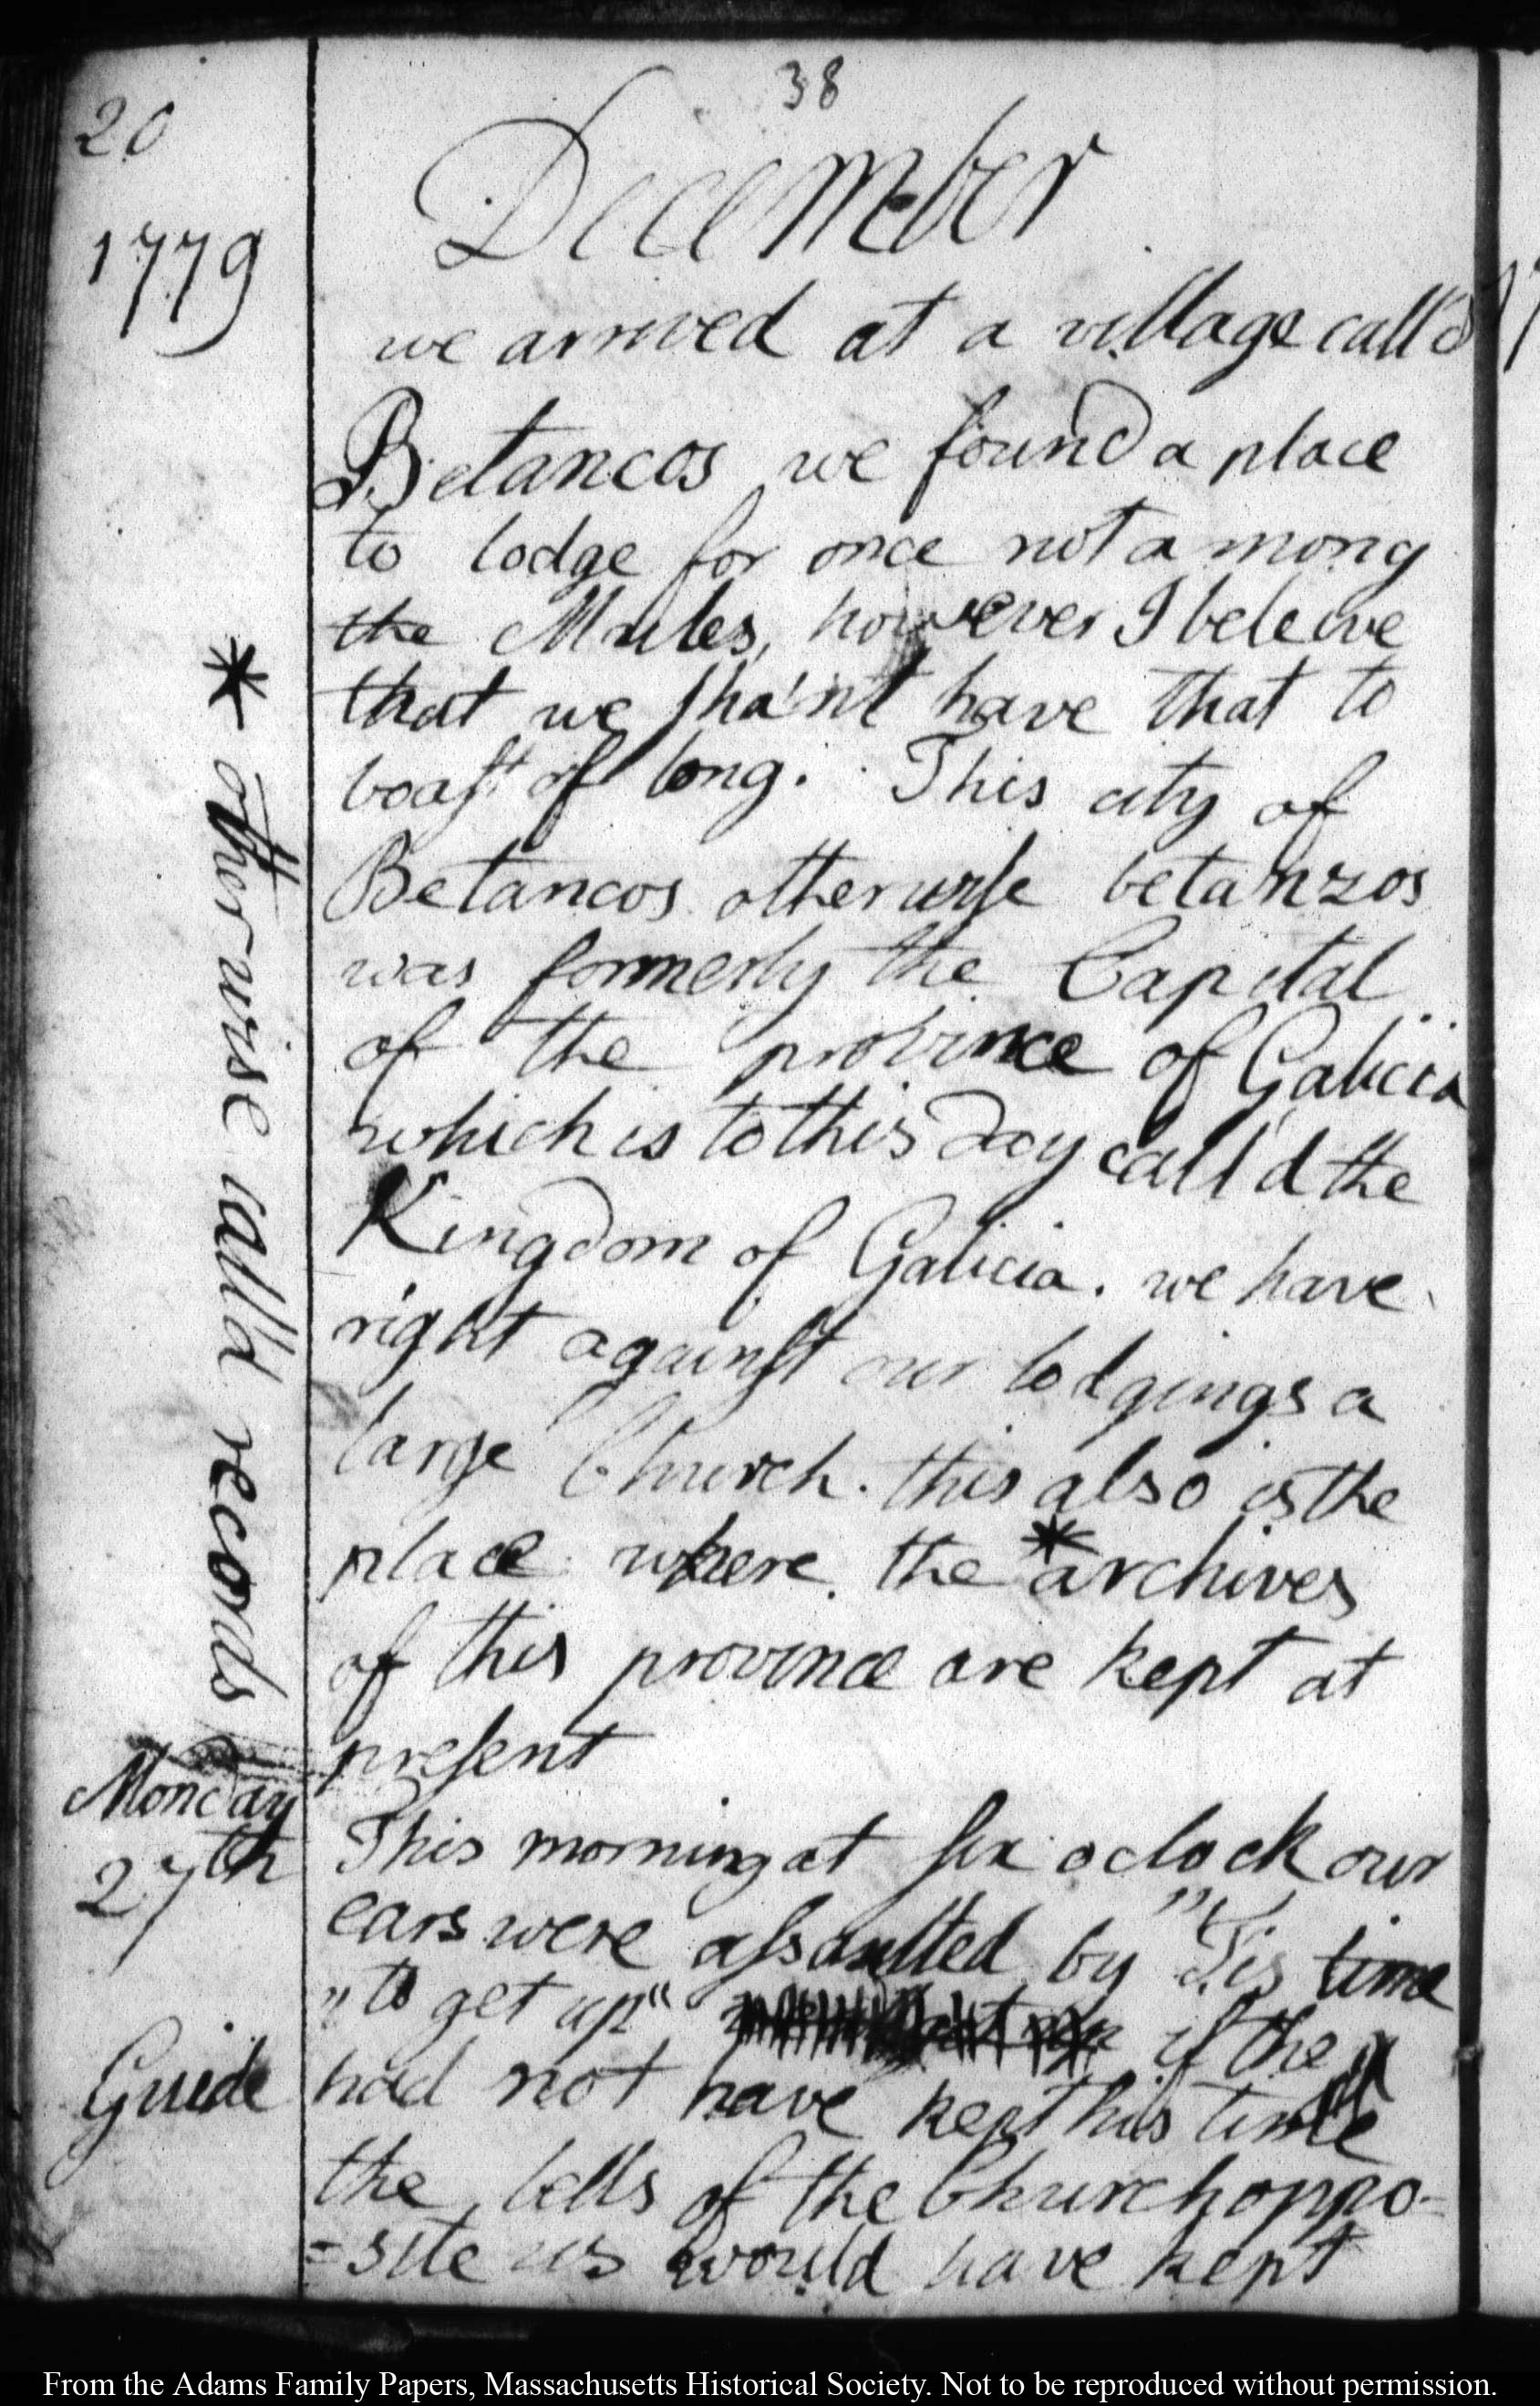 38
20
December
1779
we arrived at a village call'd
Betancos we found a place
to lodge for once not a mong
the Mules, however I beleive
that we sha'nt have that to
boast of long. This city of
Betancos otherwise betanzos
was formerly the Capital
of the province of Galicia
which is to this day call'd the
Kingdom of Galicia. we have
right against our lodgings a
large Church. this also is the
place where the *archives
of this province are kept at
present
* otherwise call'd records
Monday
27th
This morning at six o clock our
ears were assaulted by "Tis time
"to get up" if the
Guide
had not have kept his time
the bells of the Church oppo=
=site us would have kept
From the Adams Family Papers, Massachusetts Historical Society. Not to be reproduced without permission.